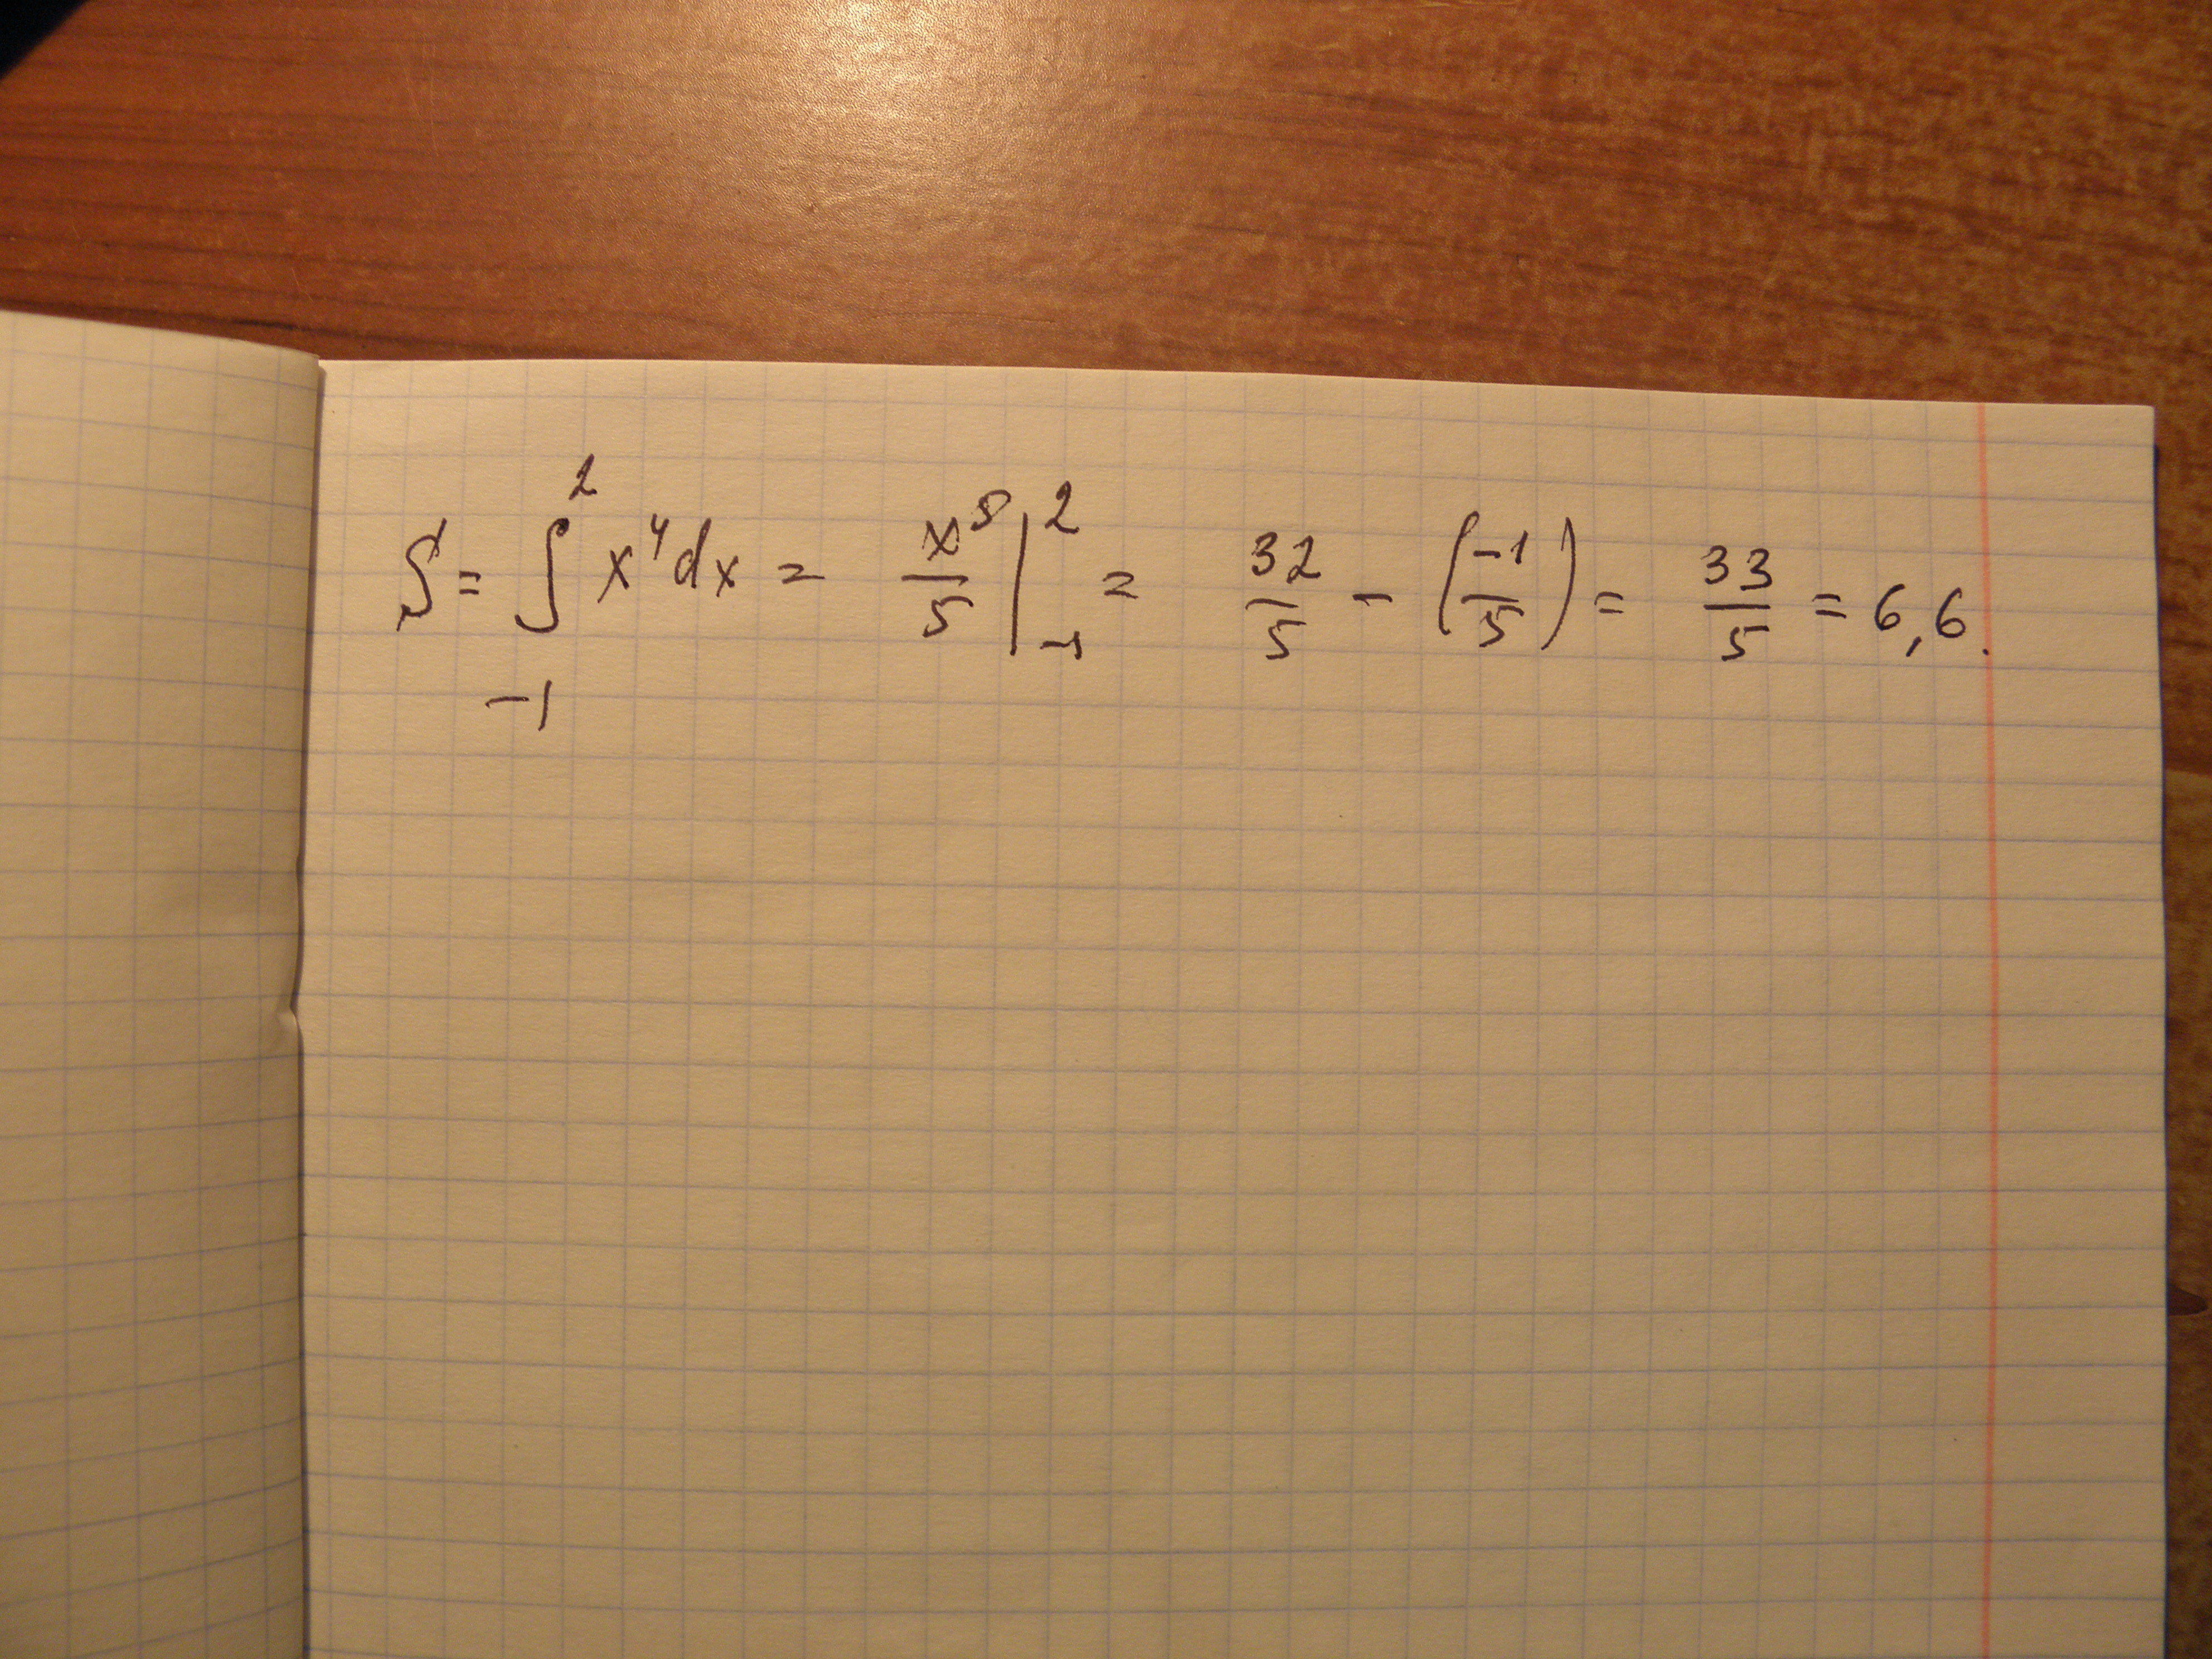 S = ∫_{-1}^{2} x^4 dx = x^5/5 |_{-1}^{2} = 32/5 - (-1/5) = 33/5 = 6,6.